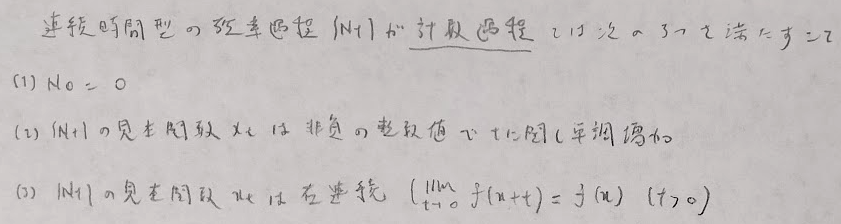 連続時間型の確率過程{Nt}が計数過程とは次の3つを満たすこと
(1) N0 = 0
(2) {Nt}の見本関数 xt は非負の整数値で tに関し単調増加
(3) {Nt}の見本関数 xt は右連続 (lim t→0 f(x+t) = f(x) (t>0)